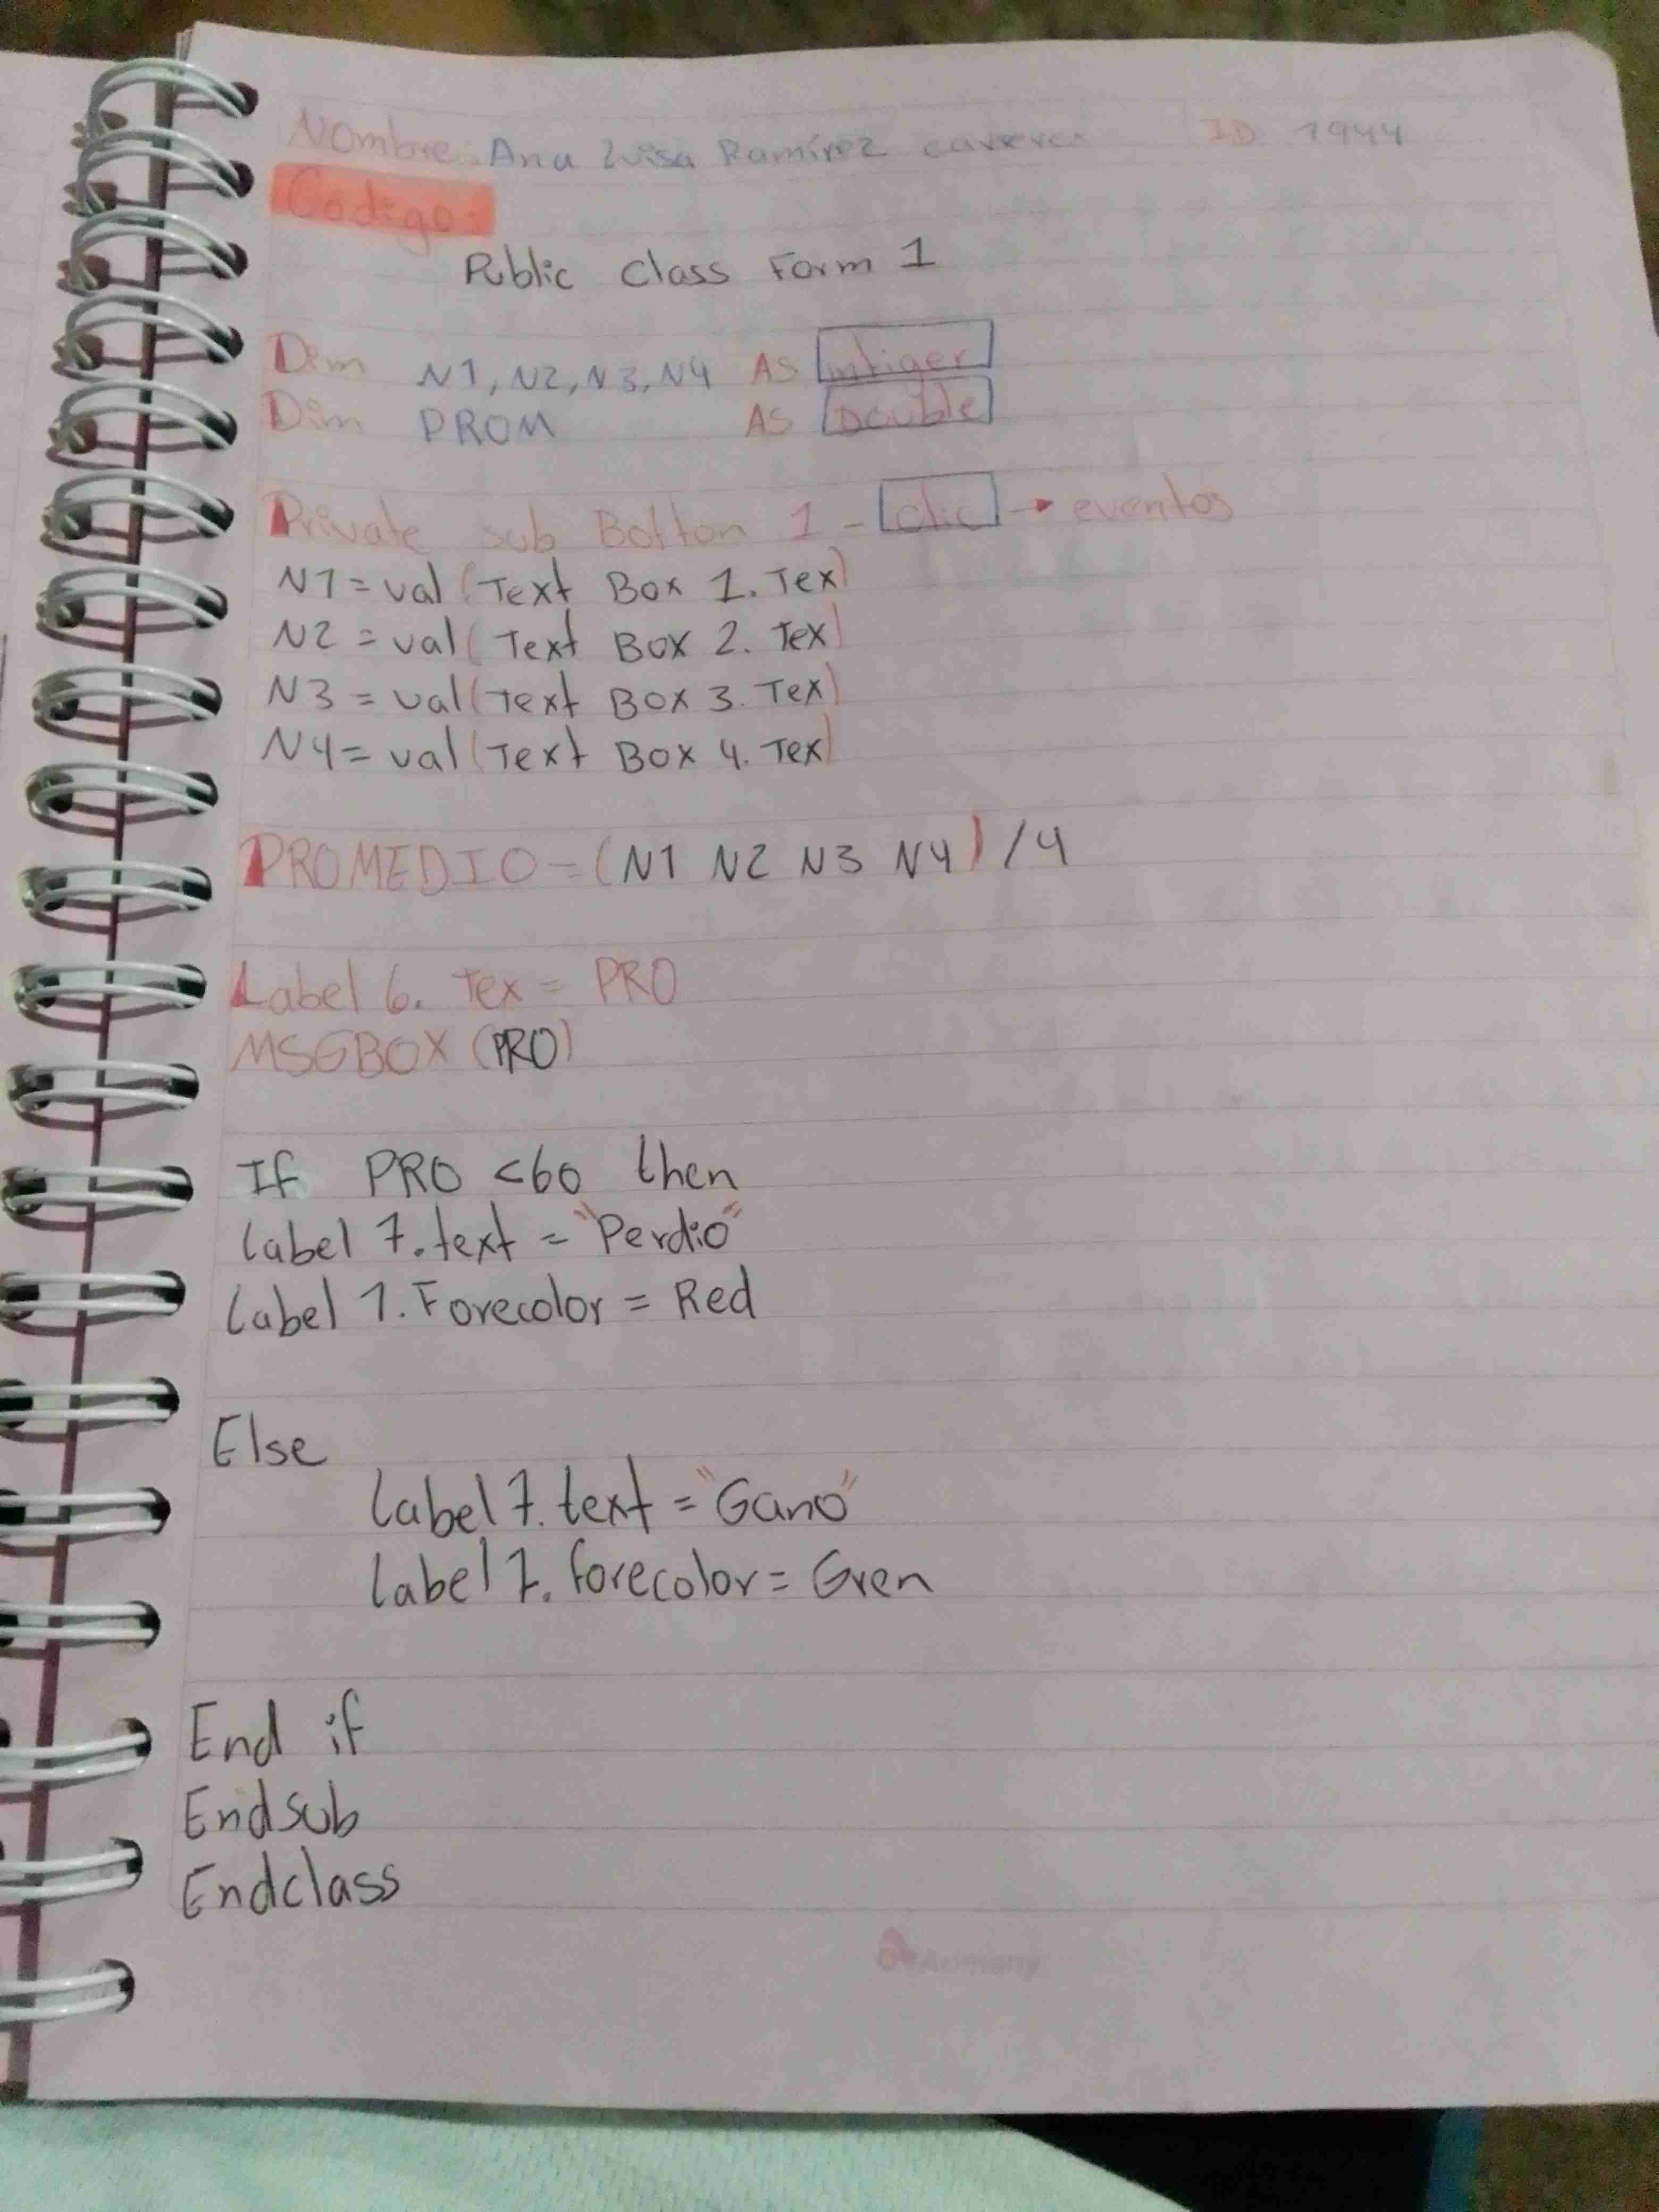 Nombre: Ana Luisa Ramírez ID 1944
Codigo:
Public Class Form 1
Dim N1, N2, N3, N4 As intiger
Dim PROM As Double
Private sub Botton 1 - clic → eventos
N1 = val (Text Box 1. Tex)
N2 = val ( Text Box 2. Tex)
N3 = val (Text Box 3. Tex)
N4 = val (Text Box 4. Tex)
PROMEDIO = (N1 N2 N3 N4) / 4
Label 6. Tex = PRO
MSGBOX (PRO)
If PRO <60 then
Label 7. text = "Perdio"
Label 7. Forecolor = Red
Else
Label 7. text = "Gano"
Label 7. forecolor = Gren
End if
Endsub
Endclass